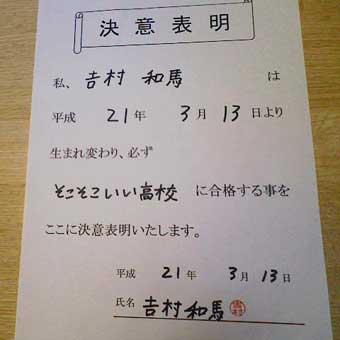 決意表明
私、𠮷村 和馬 は
平成 21年 3月 13日より
生まれ変わり、必ず
そこそこいい高校 に合格する事を
ここに決意表明いたします。
平成 21年 3月 13日
氏名 𠮷村 和馬